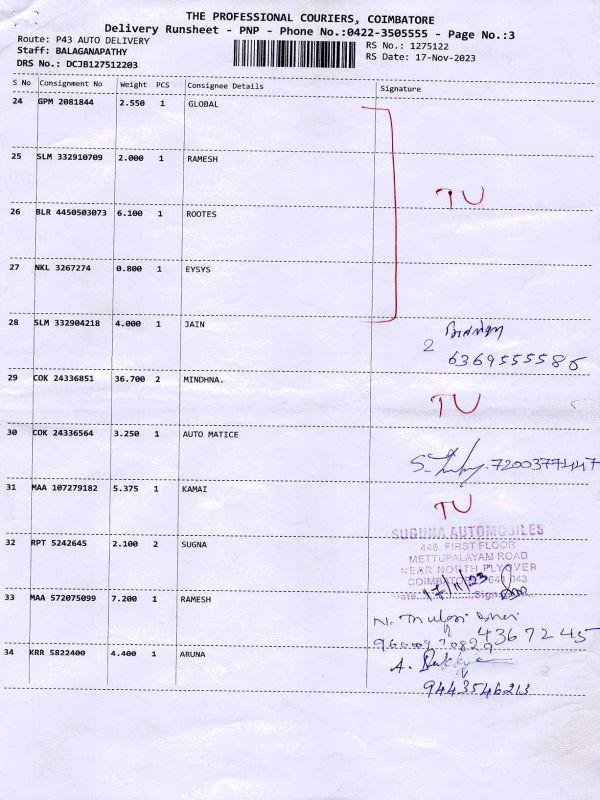 THE PROFESSIONAL COURIERS, COIMBATORE
Delivery Runsheet - PNP - Phone No.:0422-3505555 - Page No.:3
Route: P43 AUTO DELIVERY
RS No.: 1275122
Staff: BALAGANAPATHY
RS Date: 17-Nov-2023
DRS No.: DCJB127512203
S No Consignment No Weight PCS Consignee Details Signature
24 GPM 2081844 2.550 1 GLOBAL
25 SLM 332910709 2.000 1 RAMESH
TU
26 BLR 4450503073 6.100 1 ROOTES
27 NKL 3267274 0.800 1 EYSYS
28 SLM 332904218 4.000 1 JAIN
2 6369555586
29 COK 24336851 36.700 2 MINDHNA.
TU
30 COK 24336564 3.250 1 AUTO MATICE
31 MAA 107279182 5.375 1 KAMAI
TU
SUGUNA AUTOMOBILES
32 RPT 5242645 2.100 2 SUGNA
446, FIRST FLOOR
METTUPALAYAM ROAD
NEAR NORTH FLYOVER
17/11/23
33 MAA 572075099 7.200 1 RAMESH
N.
4367245
34 KRR 5822400 4.400 1 ARUNA
A.
9443546213